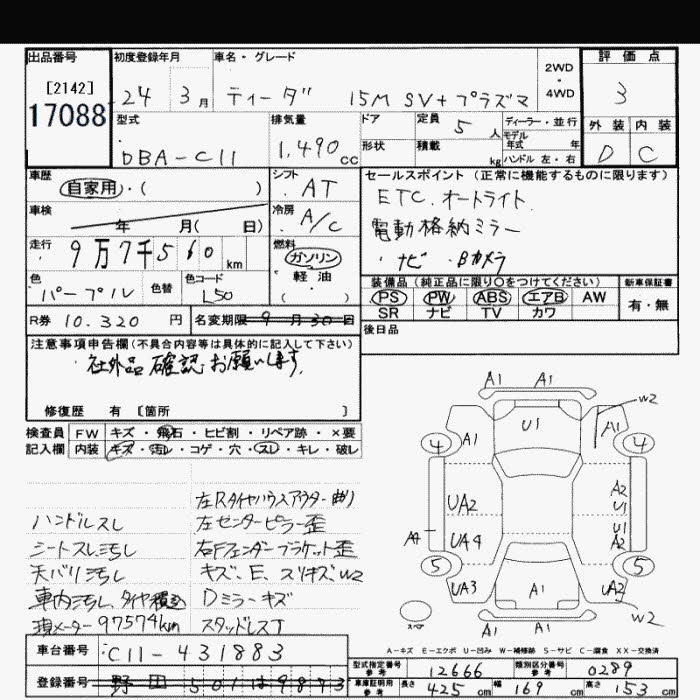 出品番号
[2142]
17088
初度登録年月
24 3月
車名・グレード
ティーダ 15M SV+プラズマ
2WD
・
4WD
評価点
3
外装 内装
D C
型式
DBA-C11
排気量
1,490cc
ドア
形状
定員 5人
積載 kg
ディーラー・並行
モデル
年式 年
ハンドル 左・右
車歴
自家用・( )
シフト
AT
車検
年 月( 日)
冷房
A/C
走行
9万7千560km
燃料
ガソリン
軽・油
( ・ )
色
パープル
色替
色コード
L50
セールスポイント(正常に機能するものに限ります)
ETC.オートライト
電動格納ミラー
・ナビ ・Bカメラ
装備品(純正品に限り○をつけてください)
PS PW ABS エアB AW
SR ナビ TV カワ
新車保証書
有・無
R券 10.320円
名変期限 9月30日
後日品
注意事項申告欄(不具合内容等は具体的に記入して下さい)
・社外品確認お願いします。
修復歴 有 [箇所 ]
検査員 FW キズ・飛石・ヒビ割・リペア跡・×要
記入欄 内装 キズ・汚レ・コゲ・穴・スレ・キレ・破レ
左Rタイヤハウスアウター曲り
ハンドルスレ 左センターピラー歪
シートスレ汚レ 右Fフェンダーブラケット歪
天バリ汚レ キズ、E、スリキズW2
車内汚レ、タイヤ積込 Dミラーキズ
現メーター97574km スタッドレスT
A1 A1
W2
4 A1 U1 A1 4
UA2 A2
U1
A4 UA4 U1
A2
5 UA3 A1 UA2 5
W2
A1 A1
A-キズ E-エクボ U-凹み W-補修跡 S-サビ C-腐食 XX-交換済
車台番号 C11-431883
登録番号 野田 501は9873
型式指定番号
参考
12666
類別区分番号
参考
0289
車庫証明用
参考
長さ 425cm 幅 169cm 高さ 153cm